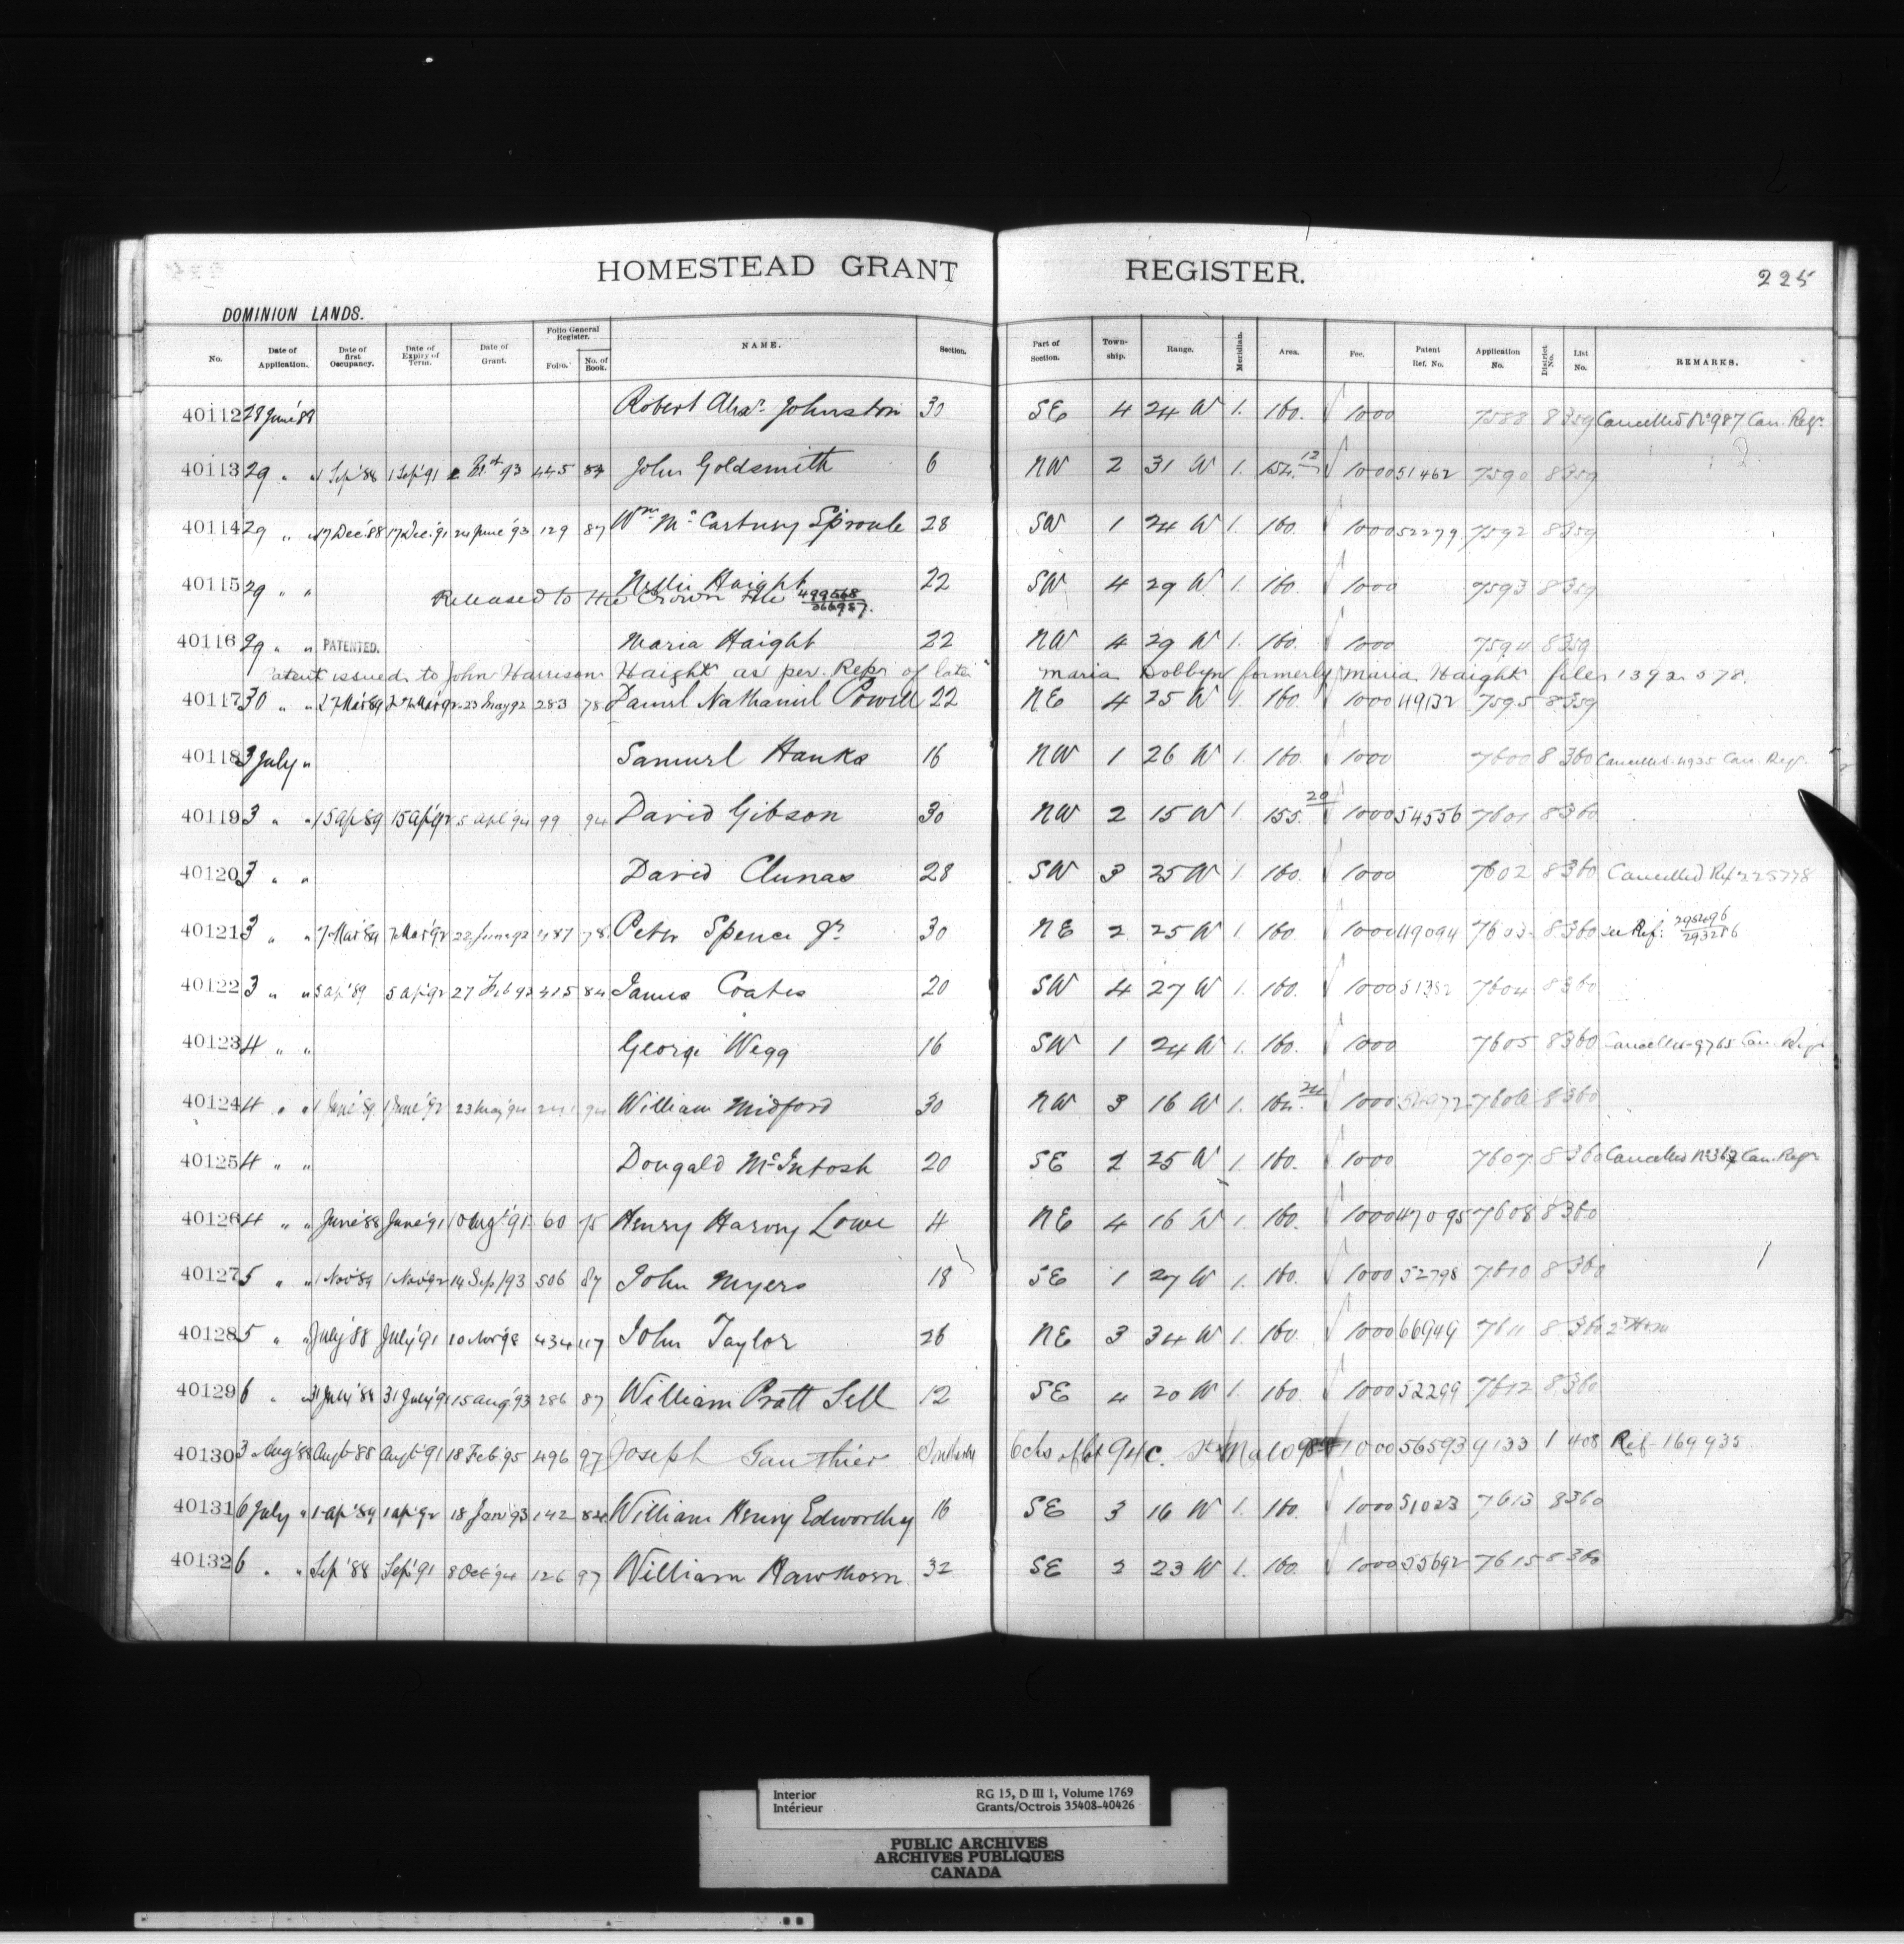 HOMESTEAD GRANT REGISTER. 225
DOMINION LANDS.
No. Date of Application. Date of first Occupancy. Date of Expiry of Term. Date of Grant. Folio General Register. Folio. No. of Book. NAME. Section. Part of Section. Township. Range. Meridian. Area. Fee. Patent Ref. No. Application No. District No. List No. REMARKS.
40112 28 June '88 Robert Alexr. Johnston 30 SE 4 24 W 1. 160. 1000 7588 8 359 Cancelled No 987 Can. Regr.
40113 29 " " 1 Sep '88 1 Sep '91 93 445 John Goldsmith 6 NW 2 31 W 1. 154. 12 1000 51462 7590 8 359
40114 29 " " 17 Dec. '88 17 Dec. '91 24 June '93 129 87 Wm. McCartney Sproule 28 SW 1 24 W 1. 160. 1000 52279 7592 8 359
40115 29 " " Nellie Haight 22 SW 4 29 W 1. 160. 1000 7593 8 359
Released to the Crown File 499568 366987.
40116 29 " " PATENTED. Maria Haight 22 NW 4 29 W 1. 160. 1000 7594 8 359
Patent issued to John Harrison Haight as per. Repr of late Maria Dobbyn formerly Maria Haight file 1392578.
40117 30 " " 27 Mar '89 27 Mar '92 23 May 92 283 78 Daniel Nathaniel Powell 22 NE 4 25 W 1. 160. 1000 49132 7595 8 359
40118 3 July " Samuel Hanks 16 NW 1 26 W 1. 160. 1000 7600 8 360 Cancelled 4935 Can. Regr.
40119 3 " " 15 ap 89 15 ap '92 5 apl '94 99 94 David Gibson 30 NW 2 15 W 1. 155. 20 1000 54556 7601 8 360
40120 3 " " David Clunas 28 SW 3 25 W 1. 160. 1000 7602 8 360 Cancelled Ref 225778
40121 3 " " 7 Mar '89 7 Mar '92 22 June 92 487 78 Peter Spence Jr. 30 NE 2 25 W 1. 160. 1000 49094 7603 8 360 see Ref: 293286
40122 3 " " 5 ap '89 5 ap '92 27 Feb 93 415 84 James Coates 20 SW 4 27 W 1. 160. 1000 51382 7604 8 360
40123 4 " " George Wegg 16 SW 1 24 W 1. 160. 1000 7605 8 360 Cancelled 9765 Can. Regr
40124 4 " " 1 June '89 1 June '92 23 May '94 94 William Midford 30 NW 3 16 W 1. 164. 24 1000 54972 7606 8 360
40125 4 " " Dougald McIntosh 20 SE 2 25 W 1. 160. 1000 7607 8 360 Cancelled No 367 Can. Regr
40126 4 " " June '88 June '91 10 Augt '91 60 75 Henry Harvey Lowe 4 NE 4 16 W 1. 160. 1000 47095 7608 8 360
40127 5 " " 1 Nov '89 1 Nov '92 14 Sep /93 506 87 John Myers 18 SE 1 27 W 1. 160. 1000 52798 7610 8 360
40128 5 " " July '88 July '91 10 Nov '98 434 117 John Taylor 26 NE 3 34 W 1. 160. 1000 66949 7611 8 360
40129 6 " " 31 July '88 31 July '91 15 aug '93 286 87 William Pratt Sell 12 SE 4 20 W 1. 160. 1000 52299 7612 8 360
40130 3 Aug '88 Augt '88 Augt '91 18 Feb. '95 496 97 Joseph Gauthier 6 chs of lot 94 C. Ste Malo 1000 56593 9133 1 408 Ref - 169935
40131 6 July " 1 ap '89 1 ap '92 18 Jan '93 142 84 William Henry Edworthy 16 SE 3 16 W 1. 160. 1000 51023 7613 8 360
40132 6 " " Sep '88 Sep '91 8 Oct '94 126 97 William Hawthorn 32 SE 2 23 W 1. 160. 1000 55692 7615 8 360
Interior RG 15, D III 1, Volume 1769
Intérieur Grants/Octrois 35408-40426
PUBLIC ARCHIVES
ARCHIVES PUBLIQUES
CANADA